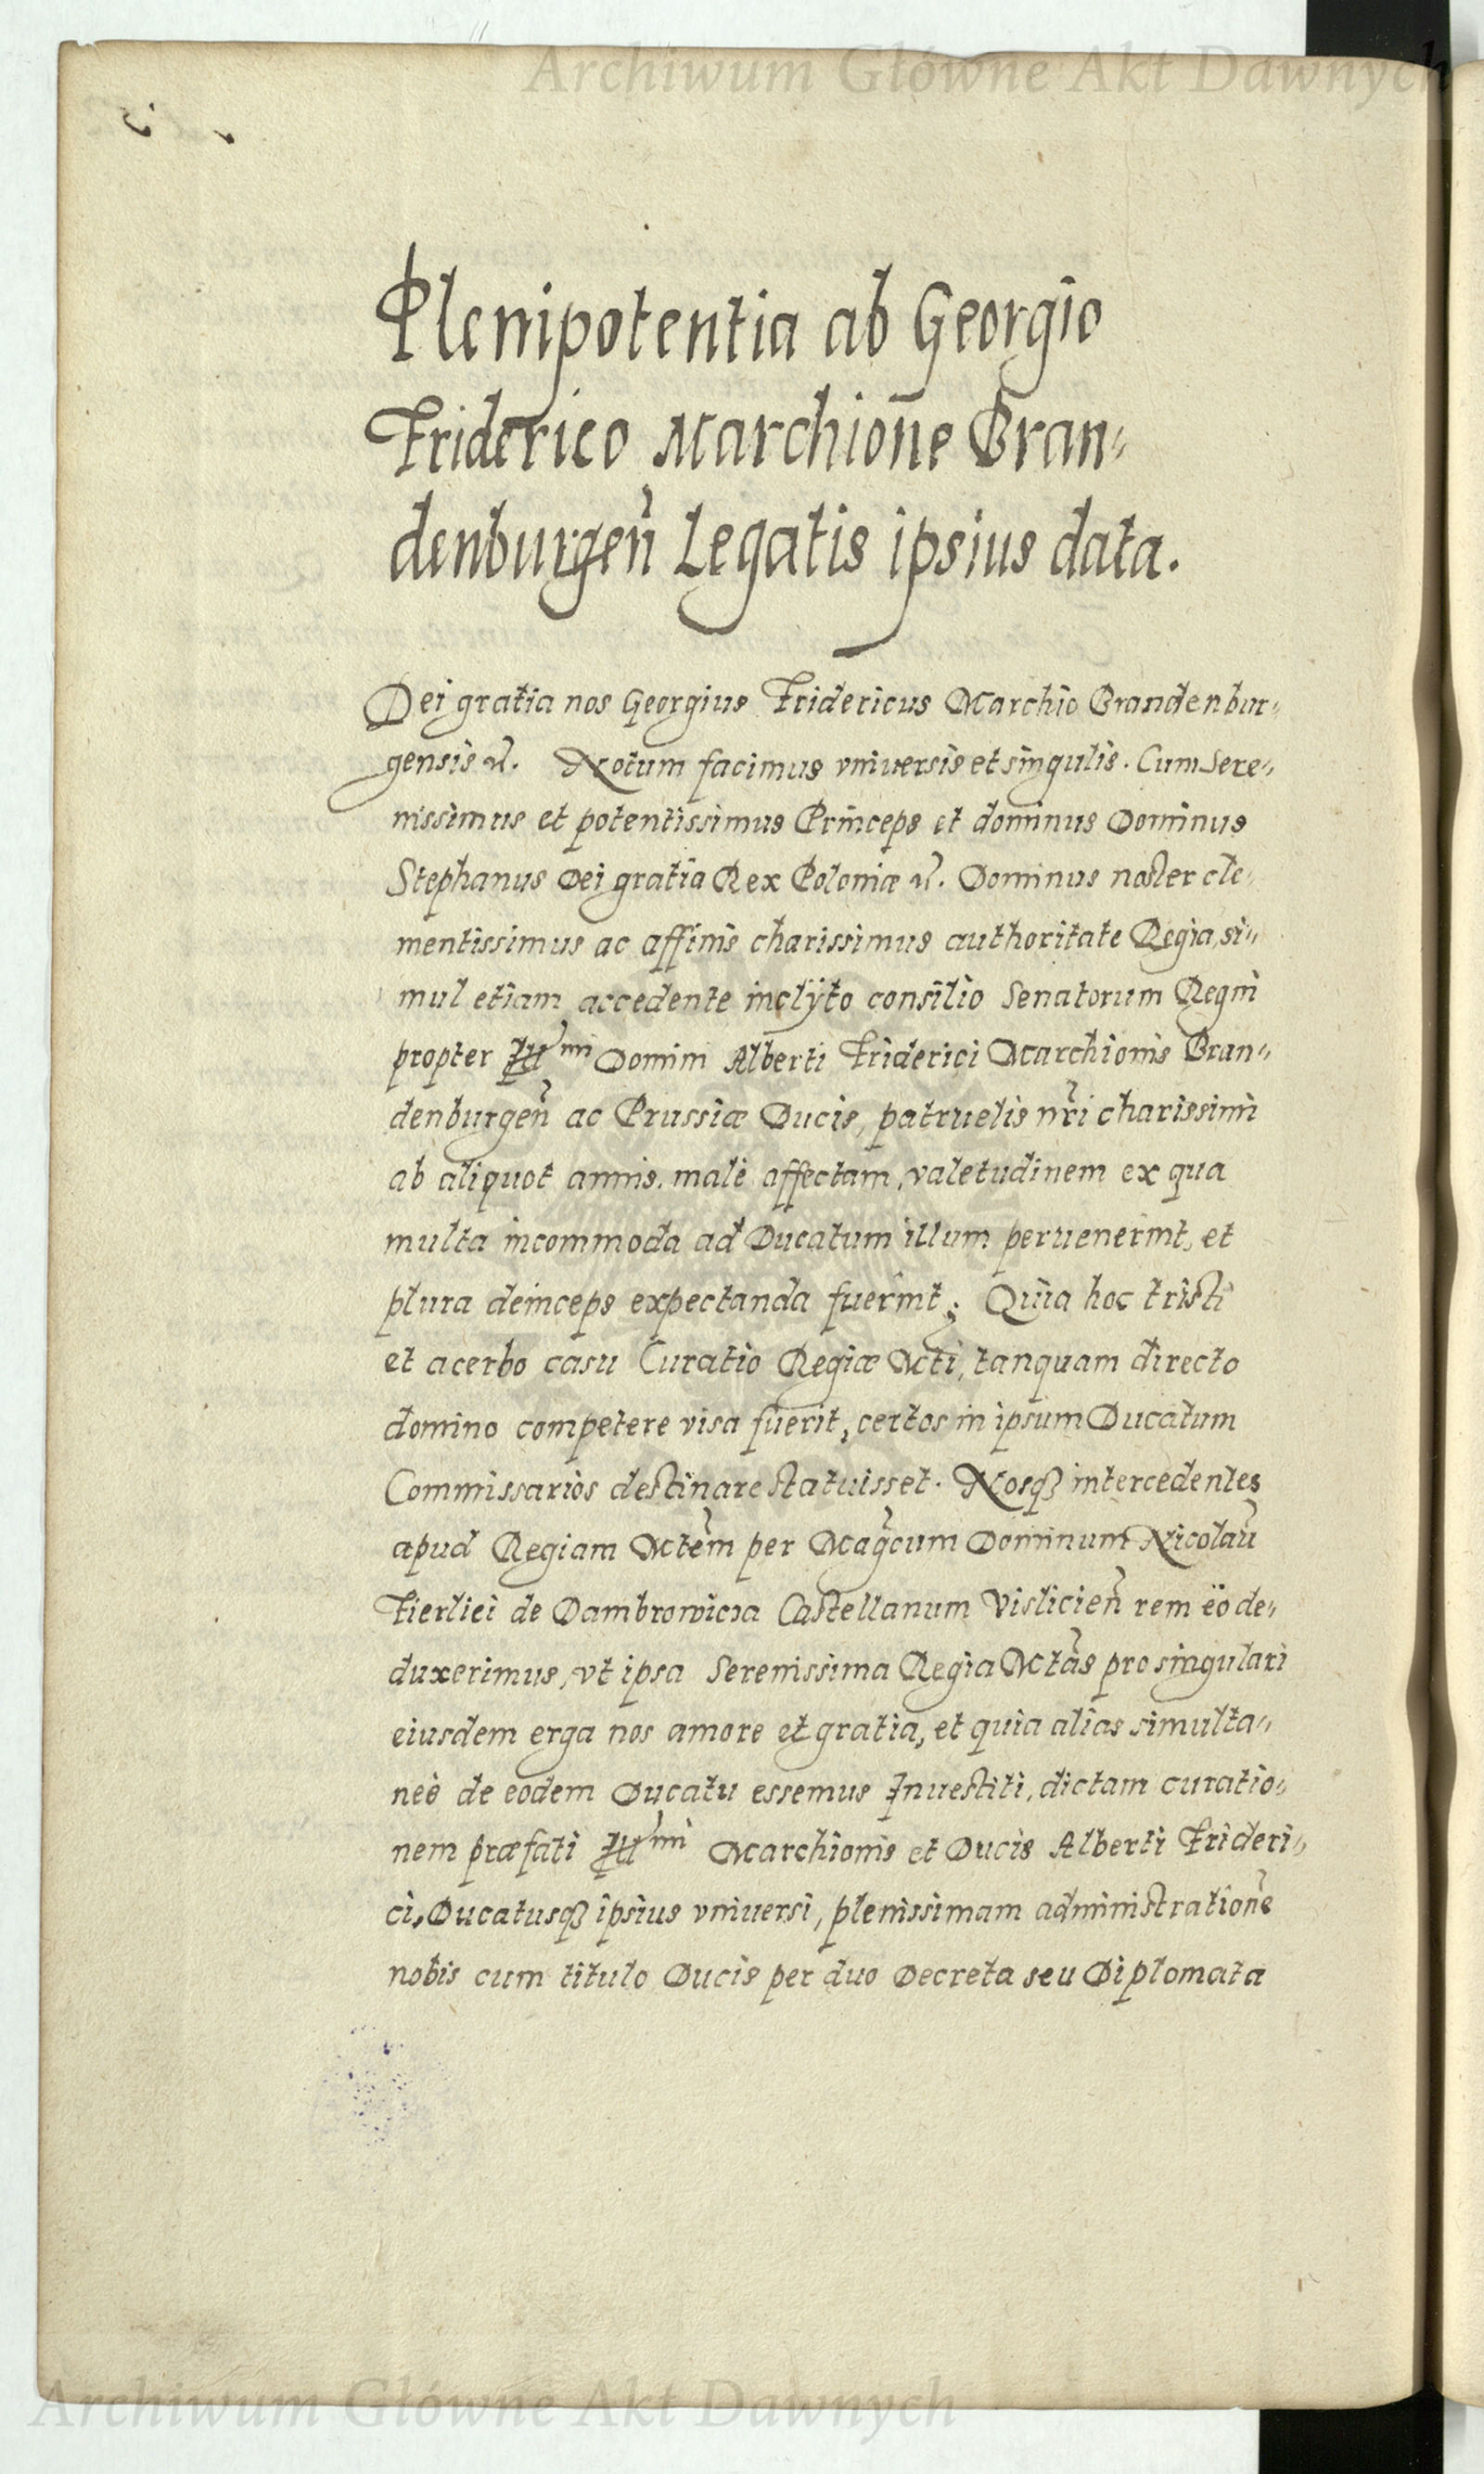 Archiwum Główne Akt Dawnych
Plenipotentia ab Georgio
Friderico Marchione Bran-
denburgeñ Legatis ipsius data.
Dei gratia nos Georgius Fridericus Marchio Brandenbur-
gensis Notum facimus vniuersis et singulis. Cum Sere-
nissimus et potentissimus Princeps et dominus Dominus
Stephanus Dei gratia Rex Poloniæ Dominus noster cle-
mentissimus ac affinis charissimus authoritate Regia, si-
mul etiam accedente inclÿto consilio Senatorum Regni
propter Ill^mi Domini Alberti Friderici Marchionis Bran-
denburgeñ ac Prussiæ Ducis, patruelis nr̃i charissimi
ab aliquot annis. malè affectam, valetudinem ex qua
multa incommoda ad Ducatum illum peruenerint, et
plura deinceps expectanda fuerint; Quia hoc tristi
et acerbo casu Curatio Regiæ Mti, tanquam directo
domino competere visa fuerit, certos in ipsum Ducatum
Commissarios destinare statuisset. Nosq3 intercedentes
apud Regiam Mtem̃ per Mag̃cum Dominum Nicolaũ
Fierliei de Dambrowicza Castellanum Vislicieñ rem ëo de-
duxerimus, vt ipsa Serenissima Regia Mtãs pro singulari
eiusdem erga nos amore et gratia, et quia alias simulta-
neè de eodem Ducatu essemus Inuestiti, dictam curatio-
nem præfati Ill^mi Marchionis et Ducis Alberti Frideri-
ci, Ducatusq3 ipsius vniuersi, plenissimam administrationẽ
nobis cum titulo Ducis per duo Decreta seu Diplomata
Archiwum Główne Akt Dawnych